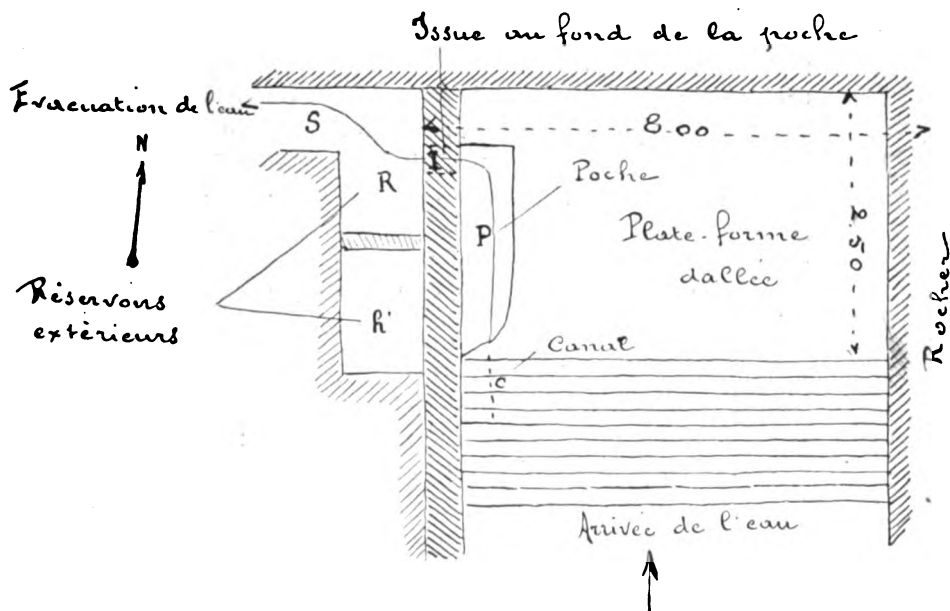 Issue au fond de la poche
Evacuation de l'eau
S
8.00
N
I
R
Poche
P
Plate-forme
dallée
2.50
Rocher
Réservons
extérieurs
h'
Canal
c
Arrivée de l'eau